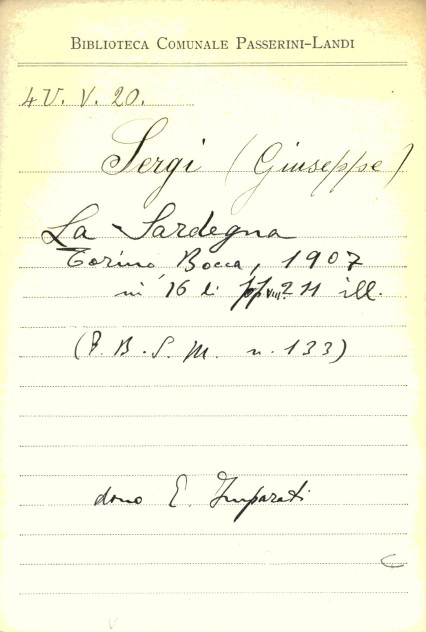 BIBLIOTECA COMUNALE PASSERINI-LANDI
4U. V. 20.
Sergi (Giuseppe)
La Sardegna
Torino, Bocca, 1907
in 16 di pp. VIII. 211 ill.
(P. B. S. M. n. 133)
dono E. Imparati
C